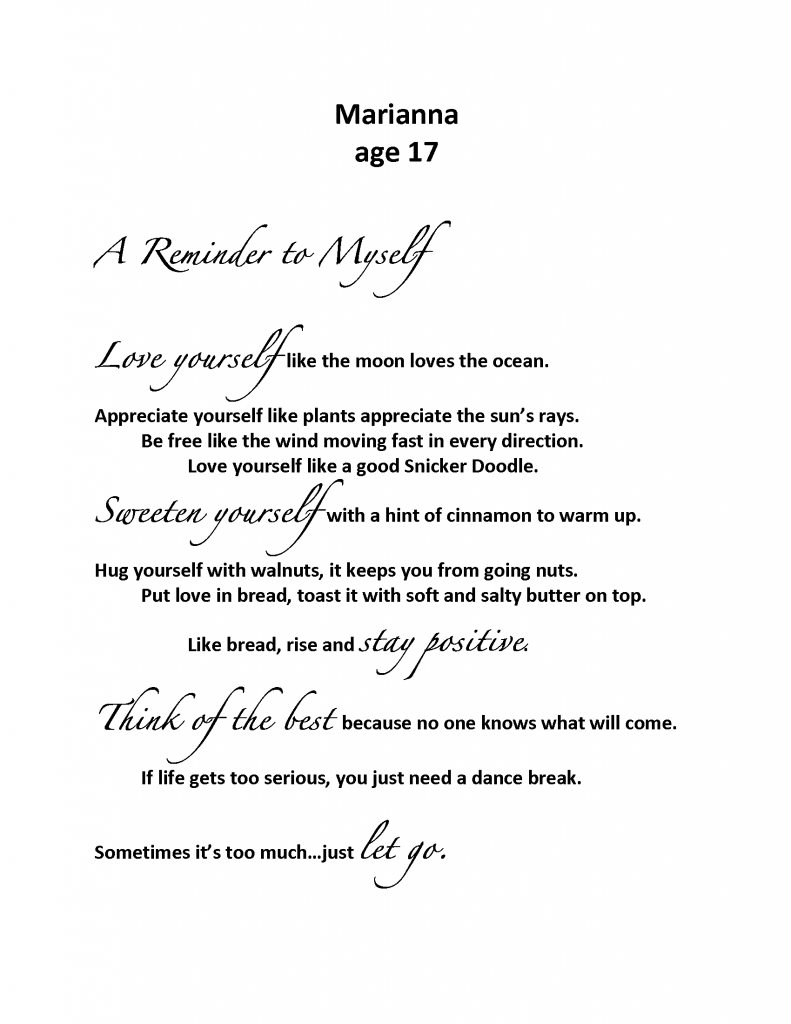 Marianna
age 17
A Reminder to Myself
Love yourself like the moon loves the ocean.
Appreciate yourself like plants appreciate the sun’s rays.
Be free like the wind moving fast in every direction.
Love yourself like a good Snicker Doodle.
Sweeten yourself with a hint of cinnamon to warm up.
Hug yourself with walnuts, it keeps you from going nuts.
Put love in bread, toast it with soft and salty butter on top.
Like bread, rise and stay positive.
Think of the best because no one knows what will come.
If life gets too serious, you just need a dance break.
Sometimes it’s too much…just let go.